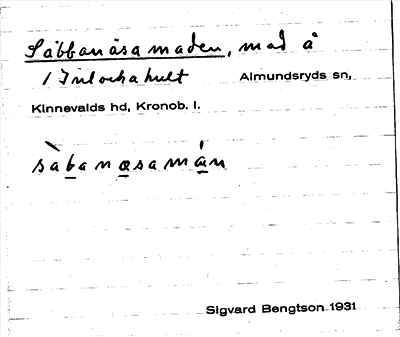 Säbbanäsamaden, mad å
1 Inlockahult Almundsryds sn,
Kinnevalds hd, Kronob. l.
sàbanæsamán
Sigvard Bengtson 1931